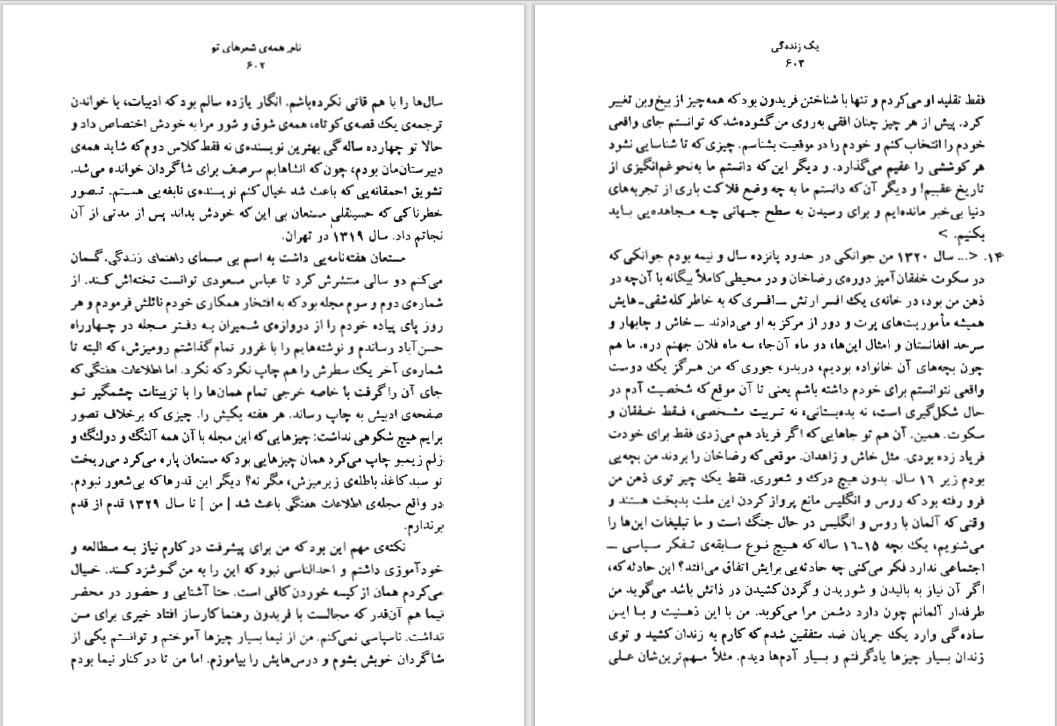 نام همه‌ی شعرهای تو
۶۰۲
سال‌ها را با هم قاتی نکرده‌باشم. انگار یازده سالم بود که ادبیات، با خواندن
ترجمه‌ی یک قصه‌ی کوتاه، همه‌ی شوق و شور مرا به خودش اختصاص داد و
حالا تو چهارده ساله‌گی بهترین نویسنده‌ی نه فقط کلاس دوم که شاید همه‌ی
دبیرستان‌مان بودم، چون که انشاهایم سرصف برای شاگردان خوانده می‌شد.
تشویق احمقانه‌یی که باعث شد خیال کنم نویسنده‌ی نابغه‌یی هستم. تصور
خطرناکی که حسینقلی مستعان بی این که خودش بداند پس از مدتی از آن
نجاتم داد. سال ۱۳۱۹ در تهران.
مستعان هفته‌نامه‌یی داشت به اسم بی مسمای راهنمای زندگی. گمان
می‌کنم دو سالی منتشرش کرد تا عباس مسعودی توانست تخته‌اش کند. از
شماره‌ی دوم و سوم مجله بود که به افتخار همکاری خودم نائلش فرمودم و هر
روز پای پیاده خودم را از دروازه‌ی شمیران به دفتر مجله در چهارراه
حسن‌آباد رساندم و نوشته‌هایم را با غرور تمام گذاشتم رومیزش، که البته تا
شماره‌ی آخر یک سطرش را هم چاپ نکرد که نکرد. اما اطلاعات هفتگی که
جای آن را گرفت با خاصه خرجی تمام همان‌ها را با تزیینات چشمگیر تو
صفحه‌ی ادبیش به چاپ رساند. هر هفته یکیش را. چیزی که برخلاف تصور
برایم هیچ شکوهی نداشت: چیزهایی که این مجله با آن همه آلنگ و دولنگ و
زلم زیمبو چاپ می‌کرد همان چیزهایی بود که مستعان پاره می‌کرد می‌ریخت
تو سبد کاغذ باطله‌ی زیرمیزش، مگر نه؟ دیگر این قدرها که بی‌شعور نبودم.
در واقع مجله‌ی اطلاعات هفتگی باعث شد [ من ] تا سال ۱۳۲۹ قدم از قدم
برندارم.
نکته‌ی مهم این بود که من برای پیشرفت در کارم نیاز به مطالعه و
خودآموزی داشتم و احدالناسی نبود که این را به من گوشزد کند. خیال
می‌کردم همان از کیسه خوردن کافی است. حتا آشنایی و حضور در محضر
نیما هم آن‌قدر که مجالست با فریدون رهنما کارساز افتاد خیری برای من
نداشت. ناسپاسی نمی‌کنم. من از نیما بسیار چیزها آموختم و توانستم یکی از
شاگردان خوبش بشوم و درس‌هایش را بیاموزم. اما من تا در کنار نیما بودم
یک زنده‌گی
۶۰۳
فقط تقلید او می‌کردم و تنها با شناختن فریدون بود که همه‌چیز از بیخ‌وبن تغییر
کرد. پیش از هر چیز چنان افقی به‌روی من گشوده‌شد که توانستم جای واقعی
خودم را انتخاب کنم و خودم را در موقعیت بشناسم. چیزی که تا شناسایی نشود
هر کوششی را عقیم می‌گذارد. و دیگر این که دانستم ما به‌نحو غم‌انگیزی از
تاریخ عقبیم! و دیگر آن‌که دانستم ما به چه وضع فلاکت باری از تجربه‌های
دنیا بی‌خبر مانده‌ایم و برای رسیدن به سطح جهانی چه مجاهده‌یی باید
بکنیم. >
۱۴. <... سال ۱۳۲۰ من جوانکی در حدود پانزده سال و نیمه بودم جوانکی که
در سکوت خفقان آمیز دوره‌ی رضاخان و در محیطی کاملاً بیگانه با آن‌چه در
ذهن من بود، در خانه‌ی یک افسر ارتش ــ افسری که به خاطر کله‌شقی‌هایش
همیشه مأموریت‌های پرت و دور از مرکز به او می‌دادند ــ خاش و چابهار و
سرحد افغانستان و امثال این‌ها، دو ماه آن‌جا، سه ماه فلان جهنم دره. ما هم
چون بچه‌های آن خانواده بودیم، دربدر، جوری که من هرگز یک دوست
واقعی نتوانستم برای خودم داشته باشم یعنی تا آن موقع که شخصیت آدم در
حال شکل‌گیری است، نه بده‌بستانی، نه تربیت مشخصی، فقط خفقان و
سکوت. همین. آن هم تو جاهایی که اگر فریاد هم می‌زدی فقط برای خودت
فریاد زده بودی. مثل خاش و زاهدان. موقعی که رضاخان را بردند من بچه‌یی
بودم زیر ۱۶ سال. بدون هیچ درک و شعوری. فقط یک چیز توی ذهن من
فرو رفته بود که روس و انگلیس مانع پرواز کردن این ملت بدبخت هستند و
وقتی که آلمان با روس و انگلیس در حال جنگ است و ما تبلیغات این‌ها را
می‌شنویم، یک بچه ۱۵-۱۶ ساله که هیچ نوع سابقه‌ی تفکر سیاسی ــ
اجتماعی ندارد فکر می‌کنی چه حادثه‌یی برایش اتفاق می‌افتد؟ این حادثه که،
اگر آن نیاز به بالیدن و شوریدن و گردن کشیدن در ذاتش باشد می‌گرید من
طرفدار آلمانم چون دارد دشمن مرا می‌کوبد. من با این ذهنیت و با این
ساده‌گی وارد یک جریان ضد متفقین شدم که کارم به زندان کشید و توی
زندان بسیار چیزها یادگرفتم و بسیار آدم‌ها دیدم. مثلاً مهم‌ترین‌شان علی